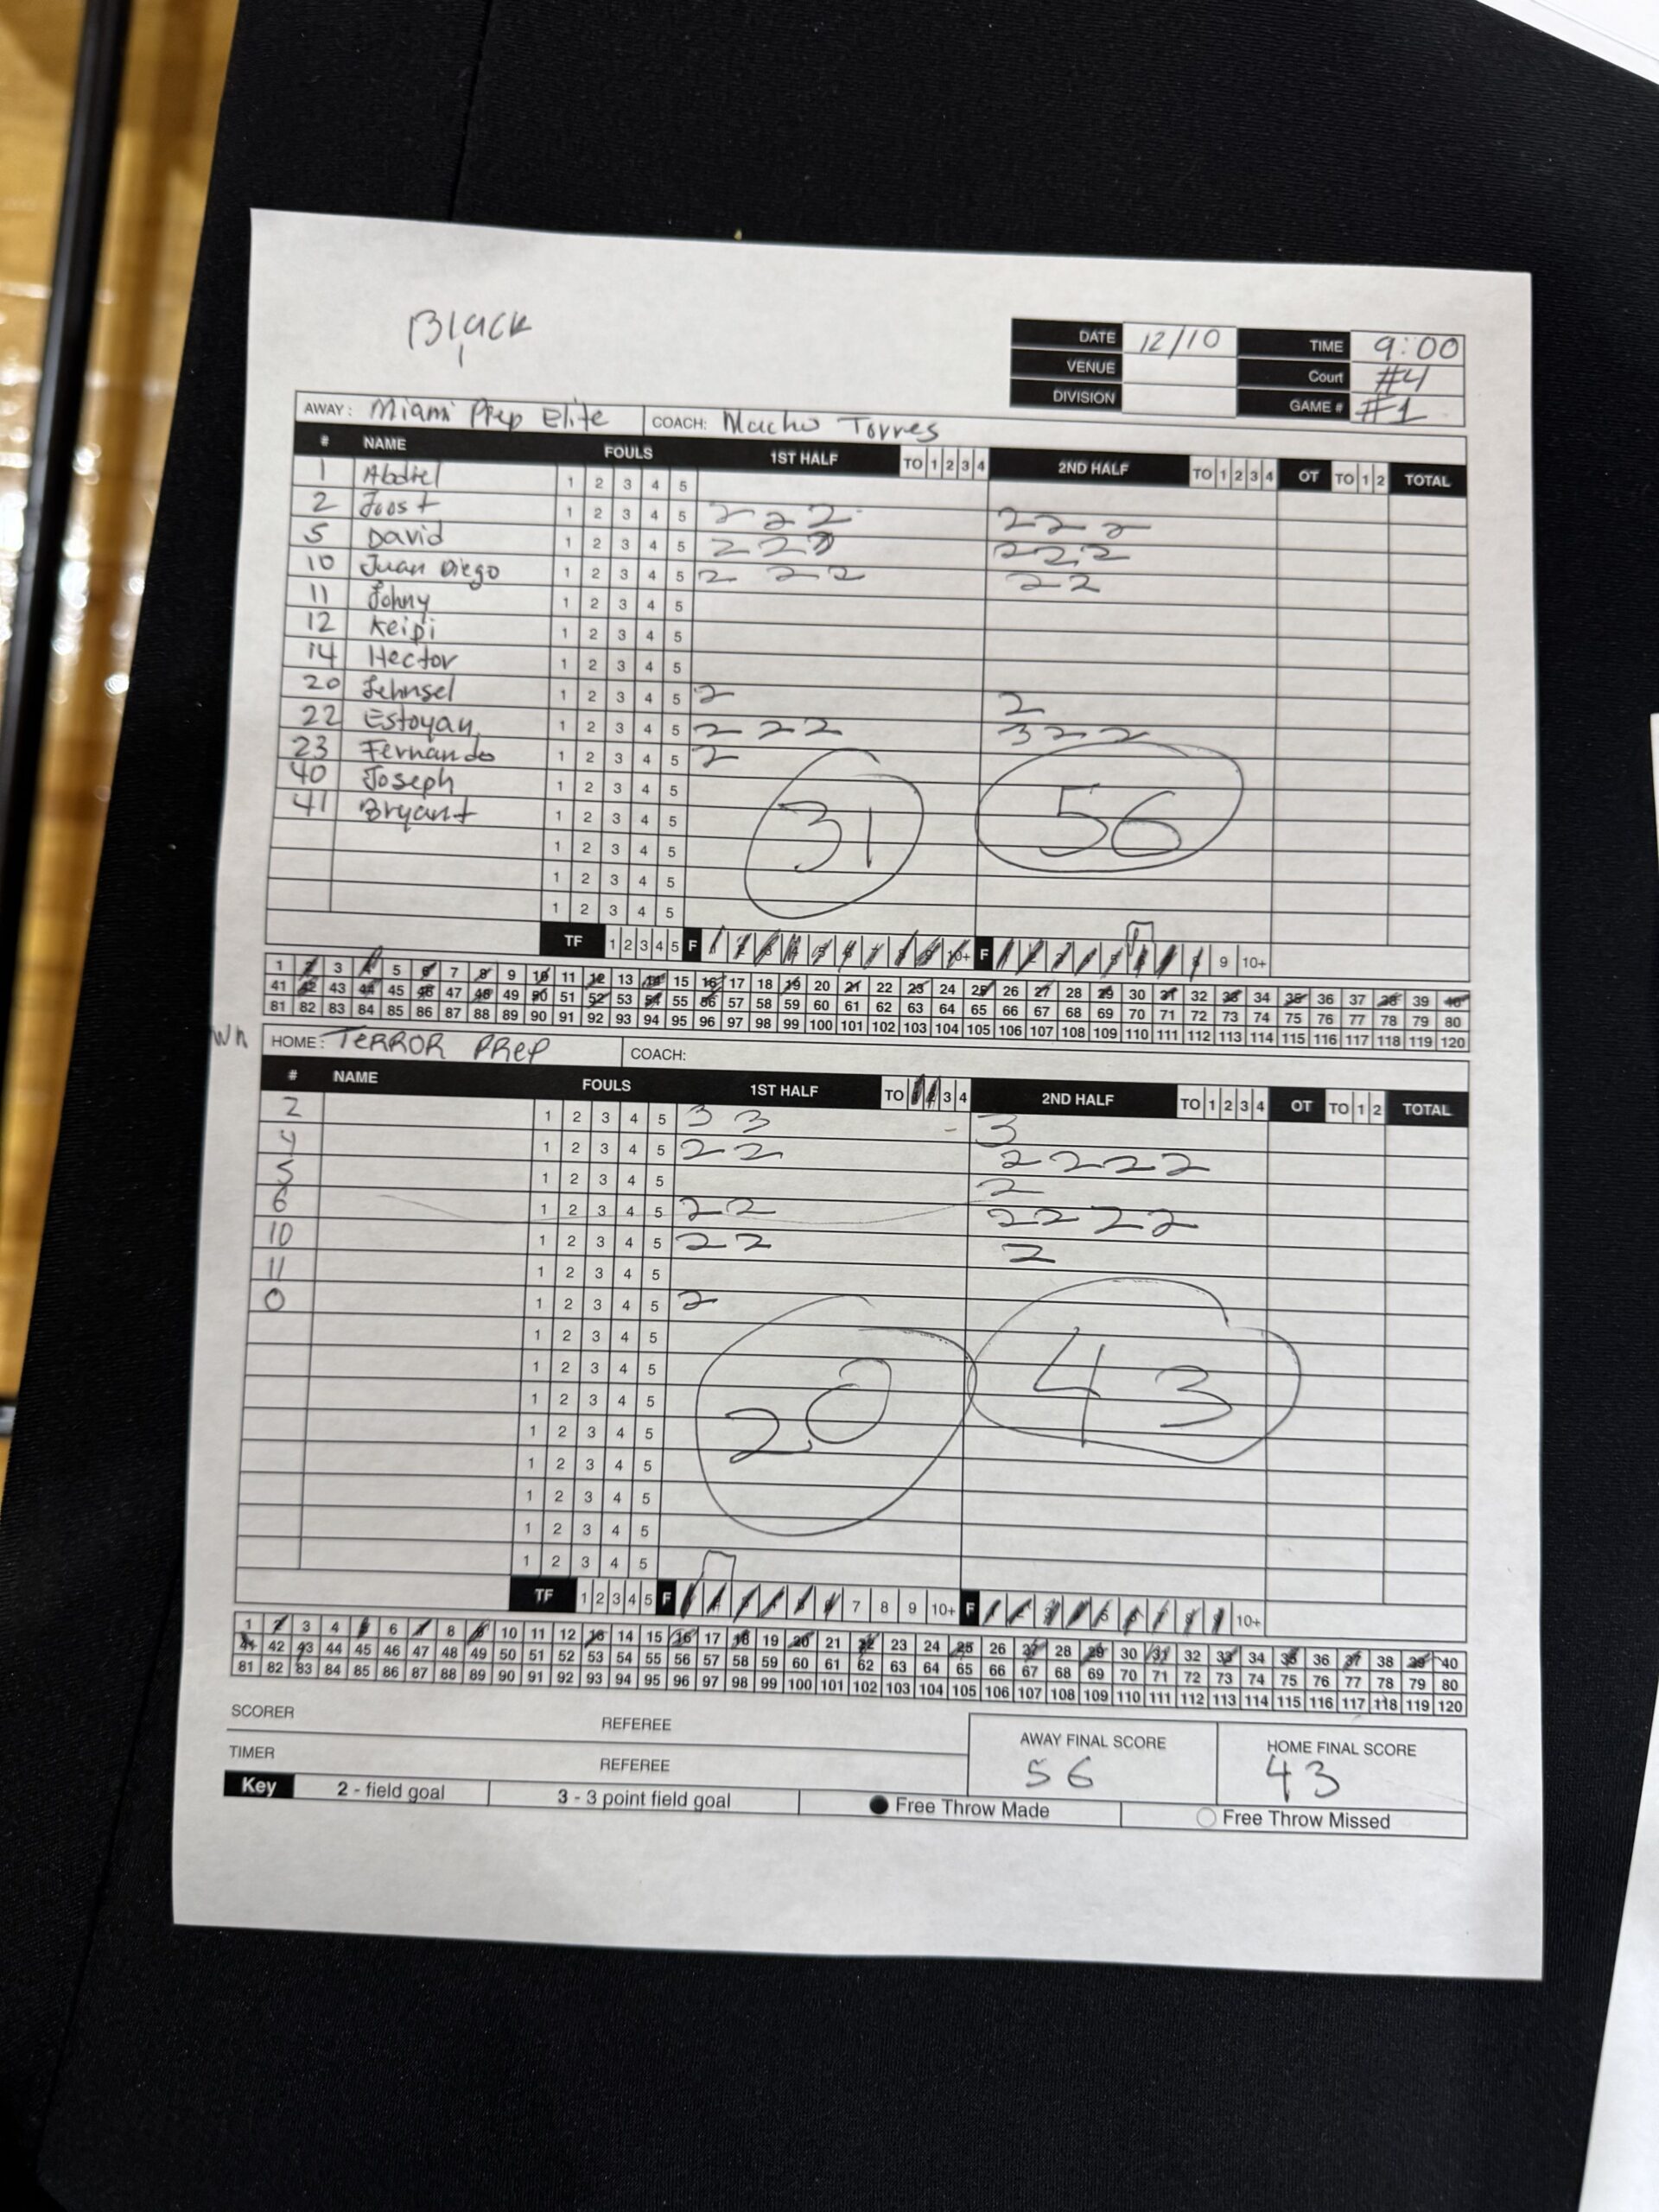 Black
DATE 12/10 TIME 9:00
VENUE Court #4
DIVISION GAME # #1
AWAY: Miami Prep Elite COACH: Nacho Torres
# NAME FOULS 1ST HALF TO 1 2 3 4 2ND HALF TO 1 2 3 4 OT TO 1 2 TOTAL
1 Abdiel 1 2 3 4 5
2 Joost 1 2 3 4 5 2 2 2 2 2 2
5 David 1 2 3 4 5 2 2 3 2 2 2
10 Juan Diego 1 2 3 4 5 2 2 2 2 2
11 Johny 1 2 3 4 5
12 Keipi 1 2 3 4 5
14 Hector 1 2 3 4 5
20 Jehnsel 1 2 3 4 5 2 2
22 Estoyan 1 2 3 4 5 2 2 2 3 2 2
23 Fernando 1 2 3 4 5 2
40 Joseph 1 2 3 4 5
41 Bryant 1 2 3 4 5 31 56
1 2 3 4 5
1 2 3 4 5
1 2 3 4 5
TF 1 2 3 4 5 F 1 2 3 4 5 6 7 8 9 10+ F 1 2 3 4 5 6 7 8 9 10+
1 2 3 4 5 6 7 8 9 10 11 12 13 14 15 16 17 18 19 20 21 22 23 24 25 26 27 28 29 30 31 32 33 34 35 36 37 38 39 40
41 42 43 44 45 46 47 48 49 50 51 52 53 54 55 56 57 58 59 60 61 62 63 64 65 66 67 68 69 70 71 72 73 74 75 76 77 78 79 80
81 82 83 84 85 86 87 88 89 90 91 92 93 94 95 96 97 98 99 100 101 102 103 104 105 106 107 108 109 110 111 112 113 114 115 116 117 118 119 120
HOME: TERROR PREP COACH:
# NAME FOULS 1ST HALF TO 1 2 3 4 2ND HALF TO 1 2 3 4 OT TO 1 2 TOTAL
2 1 2 3 4 5 3 3 3
4 1 2 3 4 5 2 2 2 2 2 2
5 1 2 3 4 5 2
6 1 2 3 4 5 2 2 2 2 2 2
10 1 2 3 4 5 2 2 2
11 1 2 3 4 5
0 1 2 3 4 5 2
1 2 3 4 5
1 2 3 4 5
1 2 3 4 5 20 43
1 2 3 4 5
1 2 3 4 5
1 2 3 4 5
1 2 3 4 5
1 2 3 4 5
TF 1 2 3 4 5 F 1 2 3 4 5 6 7 8 9 10+ F 1 2 3 4 5 6 7 8 9 10+
1 2 3 4 5 6 7 8 9 10 11 12 13 14 15 16 17 18 19 20 21 22 23 24 25 26 27 28 29 30 31 32 33 34 35 36 37 38 39 40
41 42 43 44 45 46 47 48 49 50 51 52 53 54 55 56 57 58 59 60 61 62 63 64 65 66 67 68 69 70 71 72 73 74 75 76 77 78 79 80
81 82 83 84 85 86 87 88 89 90 91 92 93 94 95 96 97 98 99 100 101 102 103 104 105 106 107 108 109 110 111 112 113 114 115 116 117 118 119 120
SCORER REFEREE AWAY FINAL SCORE HOME FINAL SCORE
TIMER REFEREE 56 43
Key 2 - field goal 3 - 3 point field goal Free Throw Made Free Throw Missed